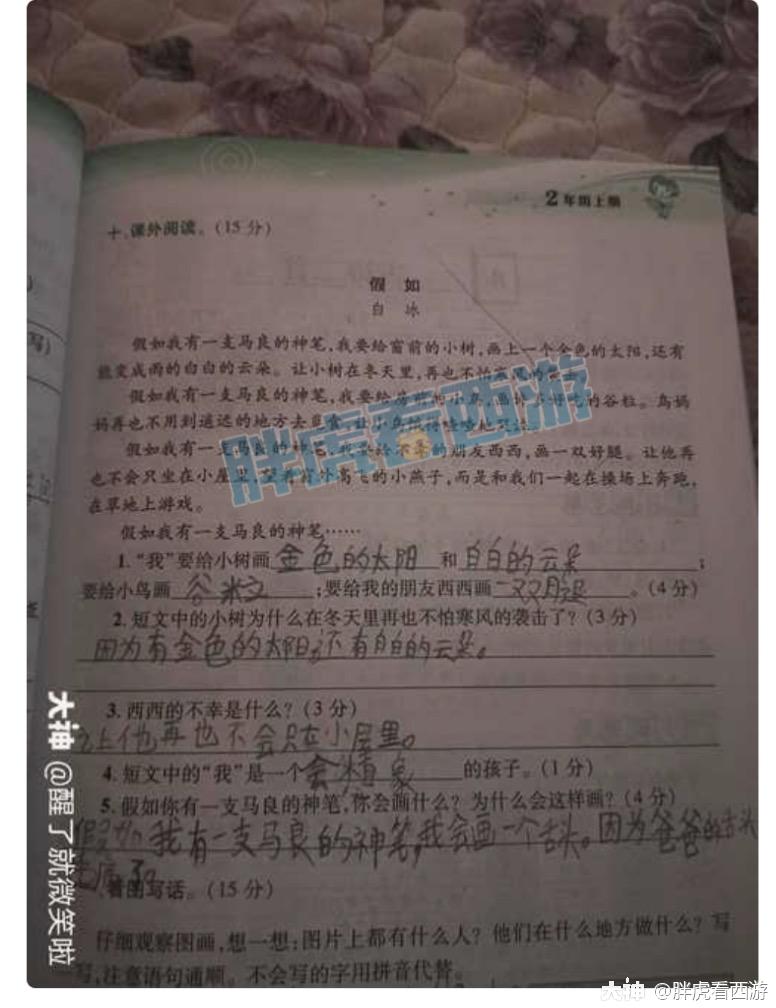 2年级上册
十、课外阅读。(15分)
假 如
白 冰
假如我有一支马良的神笔,我要给窗前的小树,画上一个金色的太阳,还有
能变成雨的白白的云朵。让小树在冬天里,再也不怕寒风的袭击。
假如我有一支马良的神笔,我要给房前的小鸟,画许多好吃的谷粒。鸟妈
妈再也不用到遥远的地方去觅食,让小鸟饿得哇哇地哭泣。
假如我有一支马良的神笔,我要给不幸的朋友西西,画一双好腿。让他再
也不会只坐在小屋里,望着窗外高飞的小燕子,而是和我们一起在操场上奔跑,
在草地上游戏。
假如我有一支马良的神笔……
1.“我”要给小树画 金色的太阳 和 白白的云朵 ;
要给小鸟画 谷粒 ;要给我的朋友西西画 双腿 。(4分)
2.短文中的小树为什么在冬天里再也不怕寒风的袭击了?(3分)
因为有金色的太阳还有白白的云朵。
3.西西的不幸是什么?(3分)
他再也不会只在小屋里。
4.短文中的“我”是一个 会 象 的孩子。(1分)
5.假如你有一支马良的神笔,你会画什么?为什么会这样画?(4分)
假如我有一支马良的神笔,我会画一个舌头。因为爸爸的舌头
了
看图写话。(15分)
仔细观察图画,想一想:图片上都有什么人?他们在什么地方做什么?写
写,注意语句通顺。不会写的字用拼音代替。
胖虎看西游
大神 @醒了就微笑啦
大神 @胖虎看西游